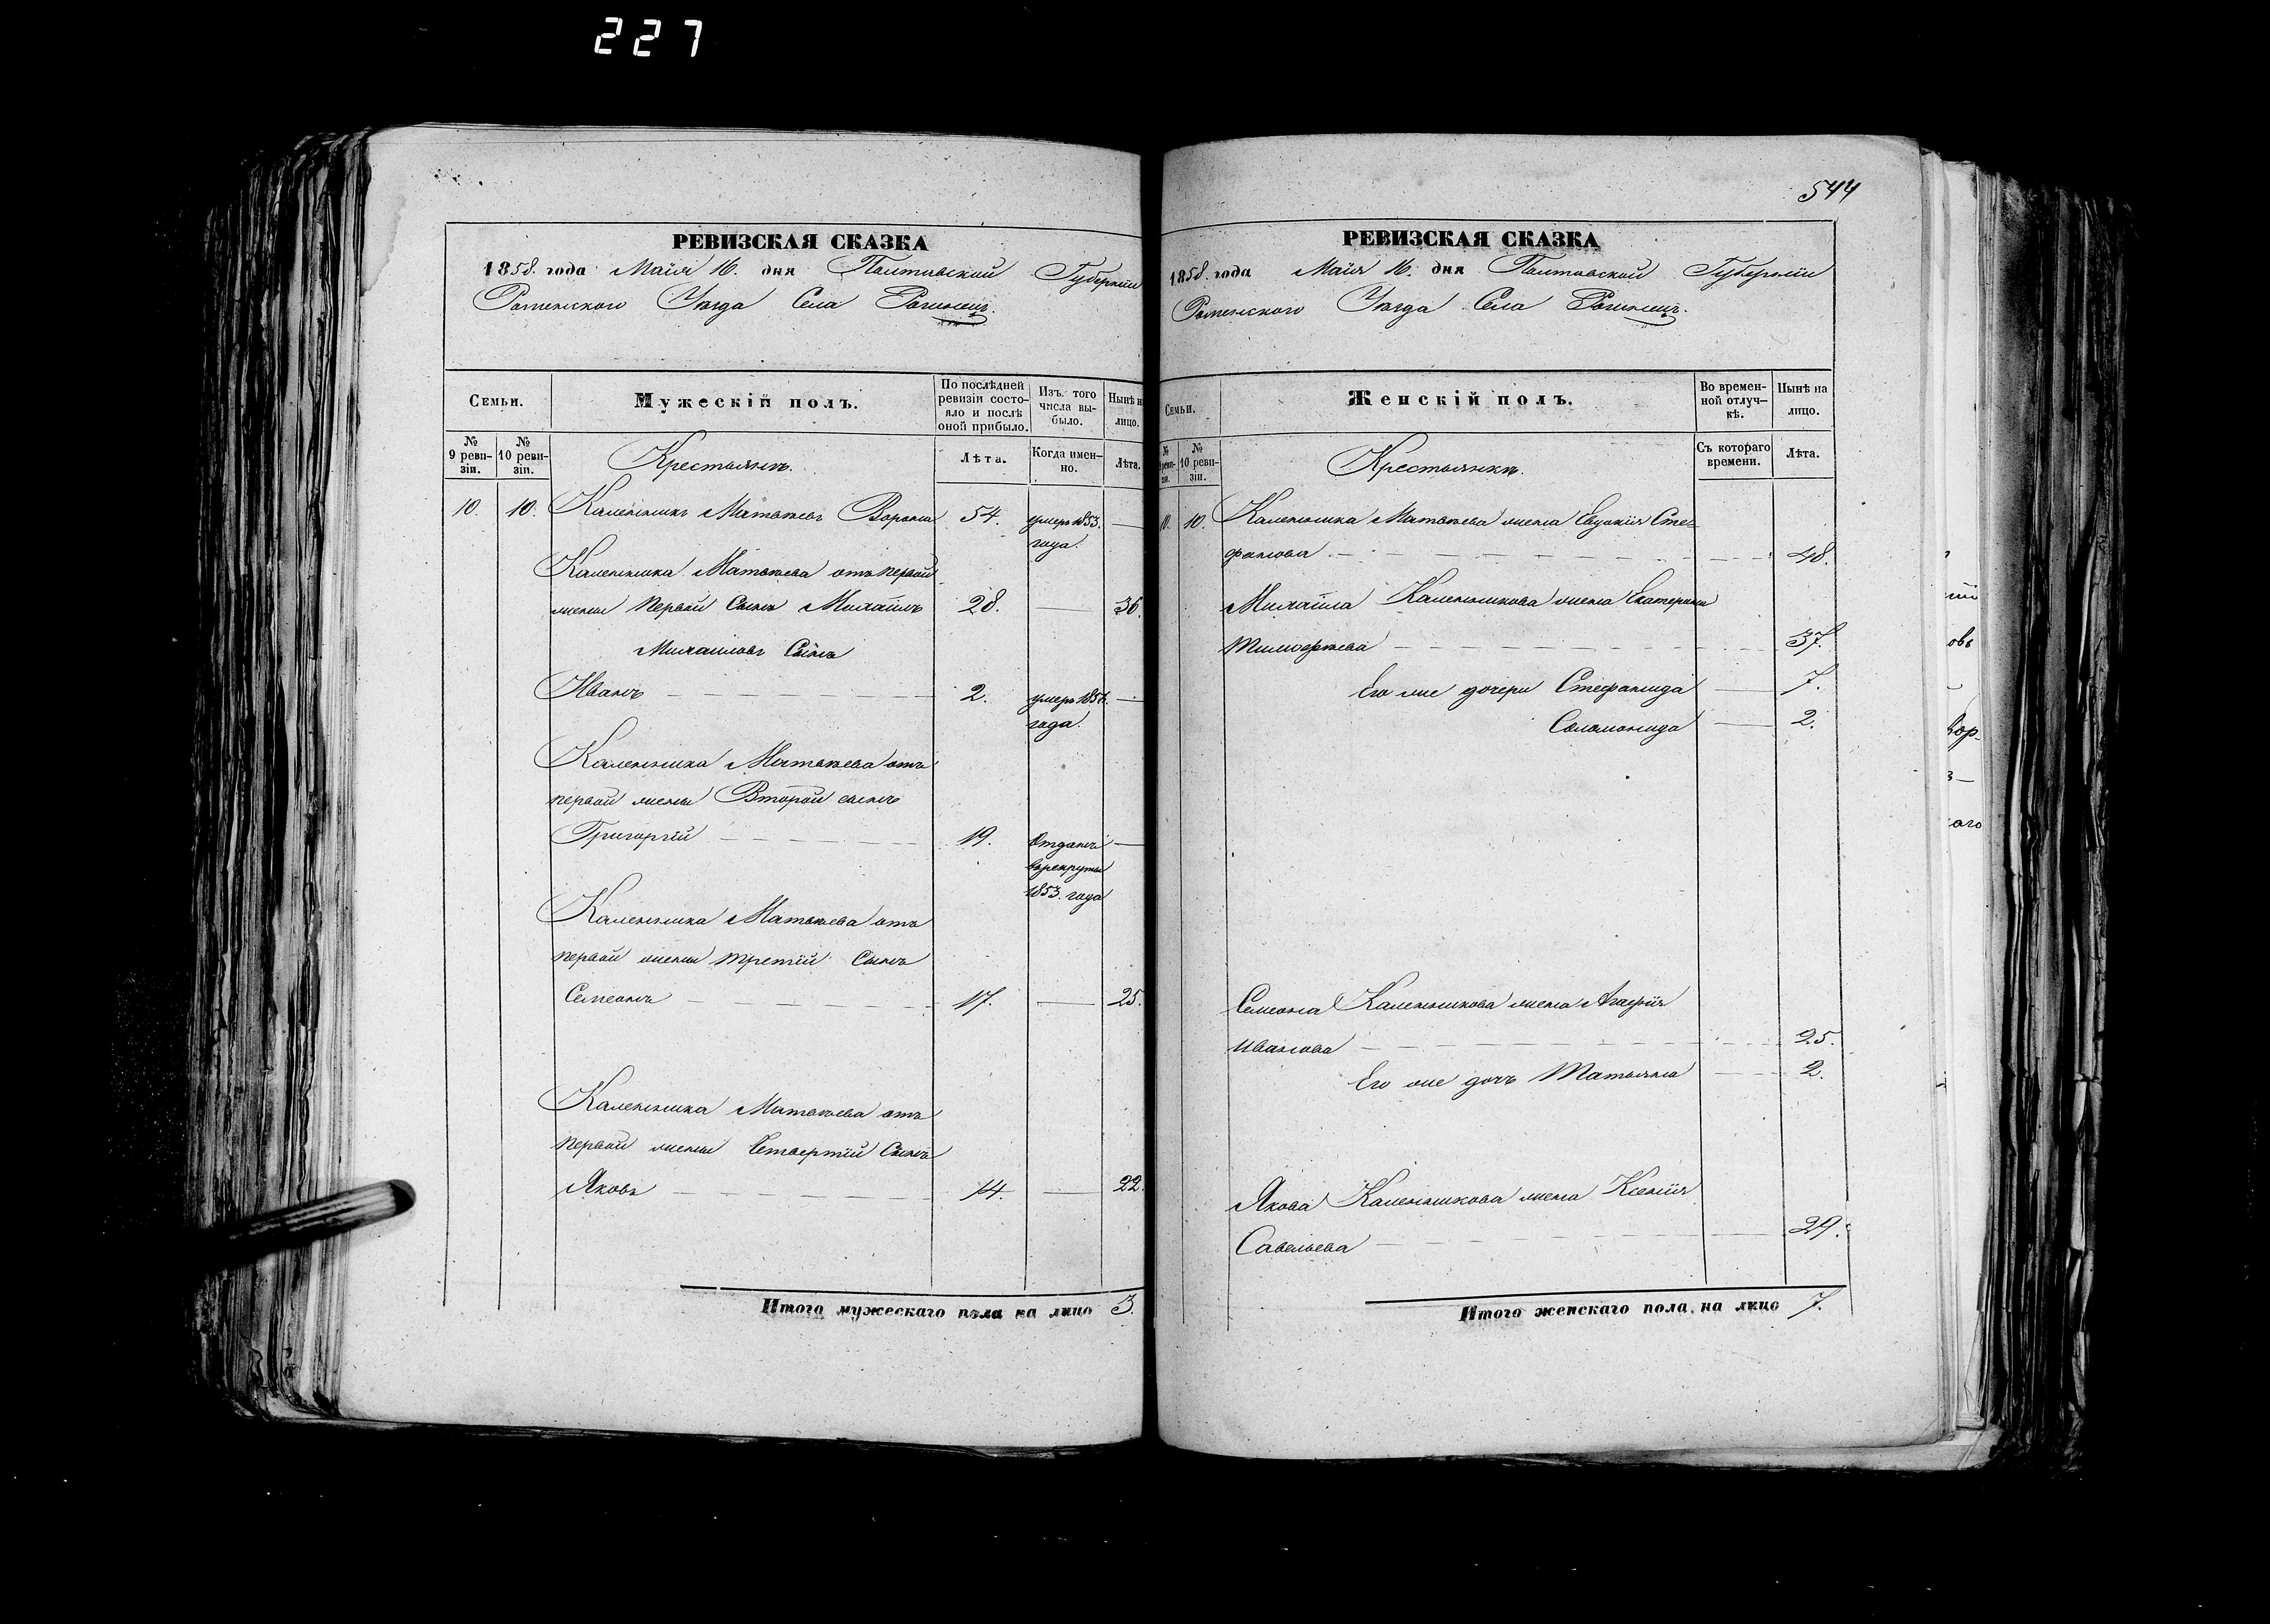 227
РЕВИЗСКАЯ СКАЗКА
1858. года Маія 16. дня Полтавской Губерніи
Роменского Уѣзда Села Рогинець.
Семьи.
Мужескій полъ.
По послѣдней ревизіи состо-
яло и послѣ оной прибыло.
Изъ того числа вы-
было.
Нынѣ на лицо.
№ 9 реви-
зіи.
№ 10 реви-
зіи.
Крестьянъ.
Лѣта.
Когда имен-
но.
Лѣта.
10. 10. Каленникъ Матвѣевъ 54. умеръ 1853. —
года.
Каленника Матвѣева отъ первой
жены первой Сынъ Михаилъ 28. — 36.
Михаиловъ Сынъ
Иванъ 2. умеръ —
года.
Каленника Матвѣева отъ
первой жены Второй сынъ
Григорій 19. Отданъ —
въ рекруты
1853. года
Каленника Матвѣева отъ
первой жены третій Сынъ
Семеонъ 17. — 25.
Каленника Матвѣева отъ
первой жены Четвертій Сынъ
Яковъ 14. — 22.
Итого мужескаго пола на лицо 3.
544
РЕВИЗСКАЯ СКАЗКА
1858. года Маія 16. дня Полтавской Губерніи
Роменского Уѣзда Села Рогинець.
Семьи.
Женскій полъ.
Во времен-
ной отлуч-
кѣ.
Нынѣ на лицо.
№ 9 реви-
зіи.
№ 10 реви-
зіи.
Крестьянкъ.
Съ котораго времени.
Лѣта.
10. 10. Каленника Матвѣева жена Евдокія Сте-
фанова — 48.
Михаила Каленникова жена Екатерина
Тимофѣева 37.
Его же дочери Стефанида — 7.
Соломонида — 2.
Семеона Каленникова жена Агафія
Иванова 25.
Его же дочь Татьяна — 2.
Якова Каленникова жена Ксенія
Савельева 29.
Итого женскаго пола на лицо 7.